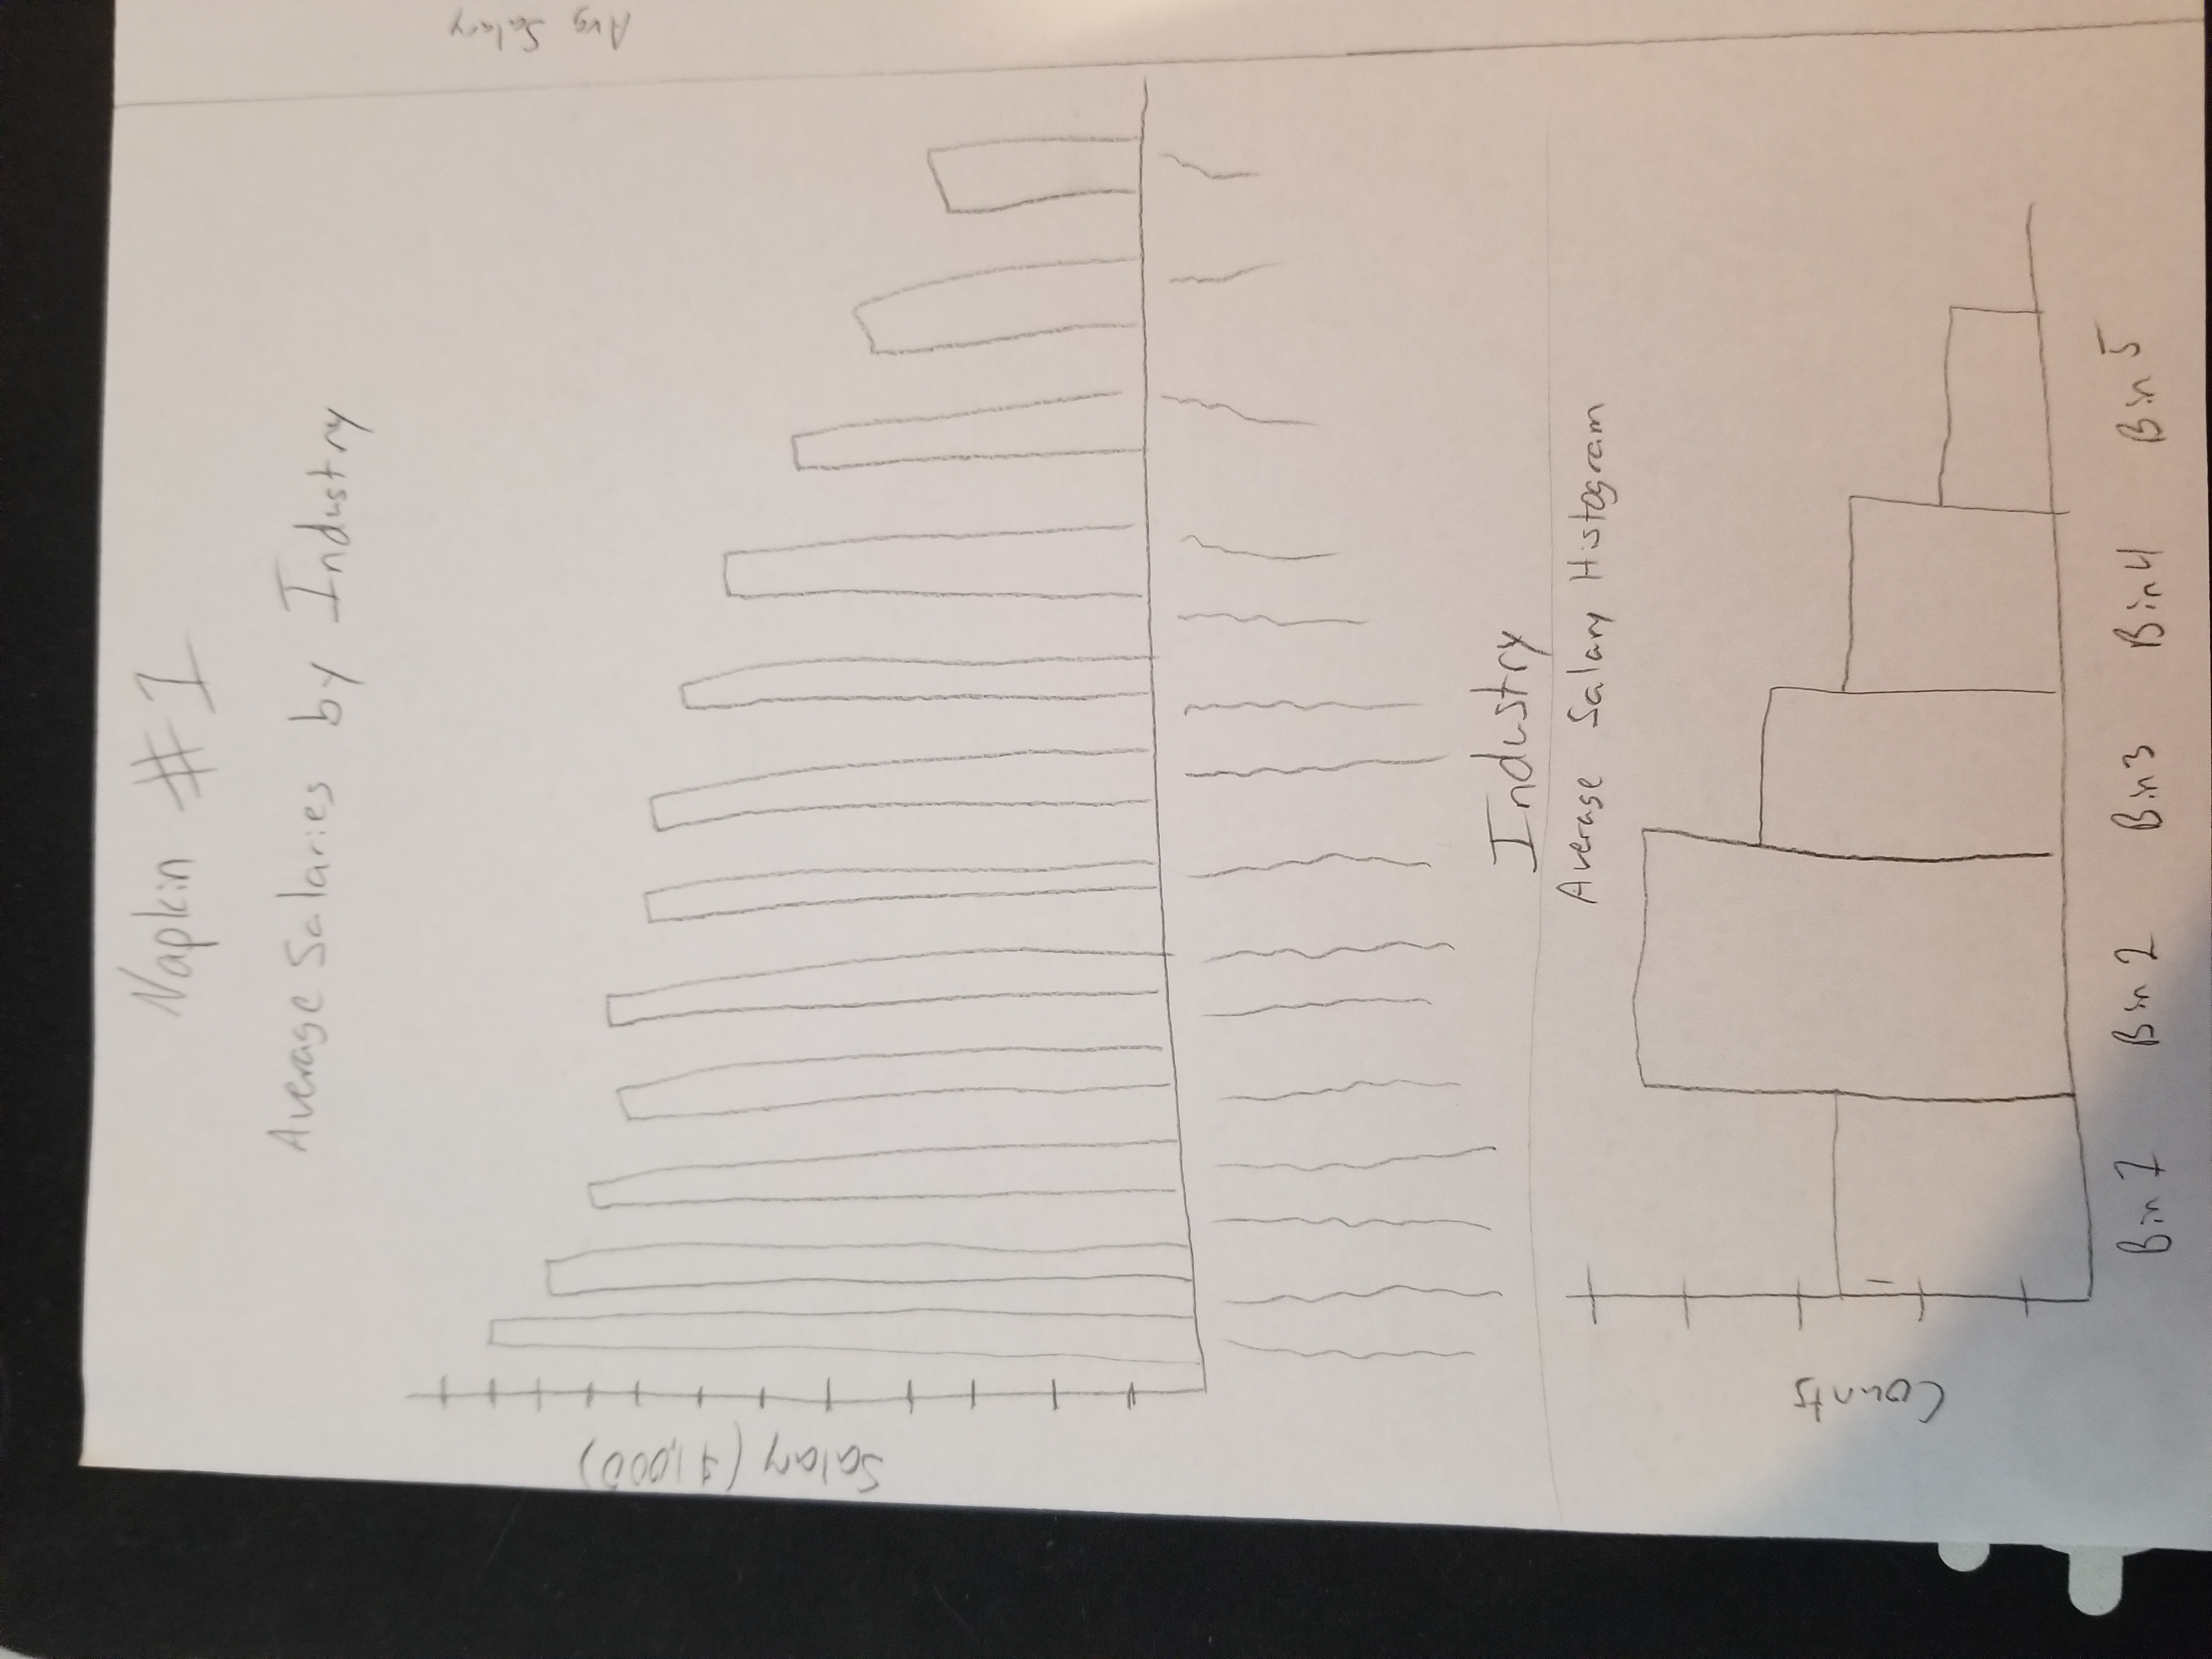 Napkin #1
Average Salaries by Industry
Salary ($1,000)
Avg Salary
Industry
Average Salary Histogram
Counts
Bin 1 Bin 2 Bin 3 Bin 4 Bin 5